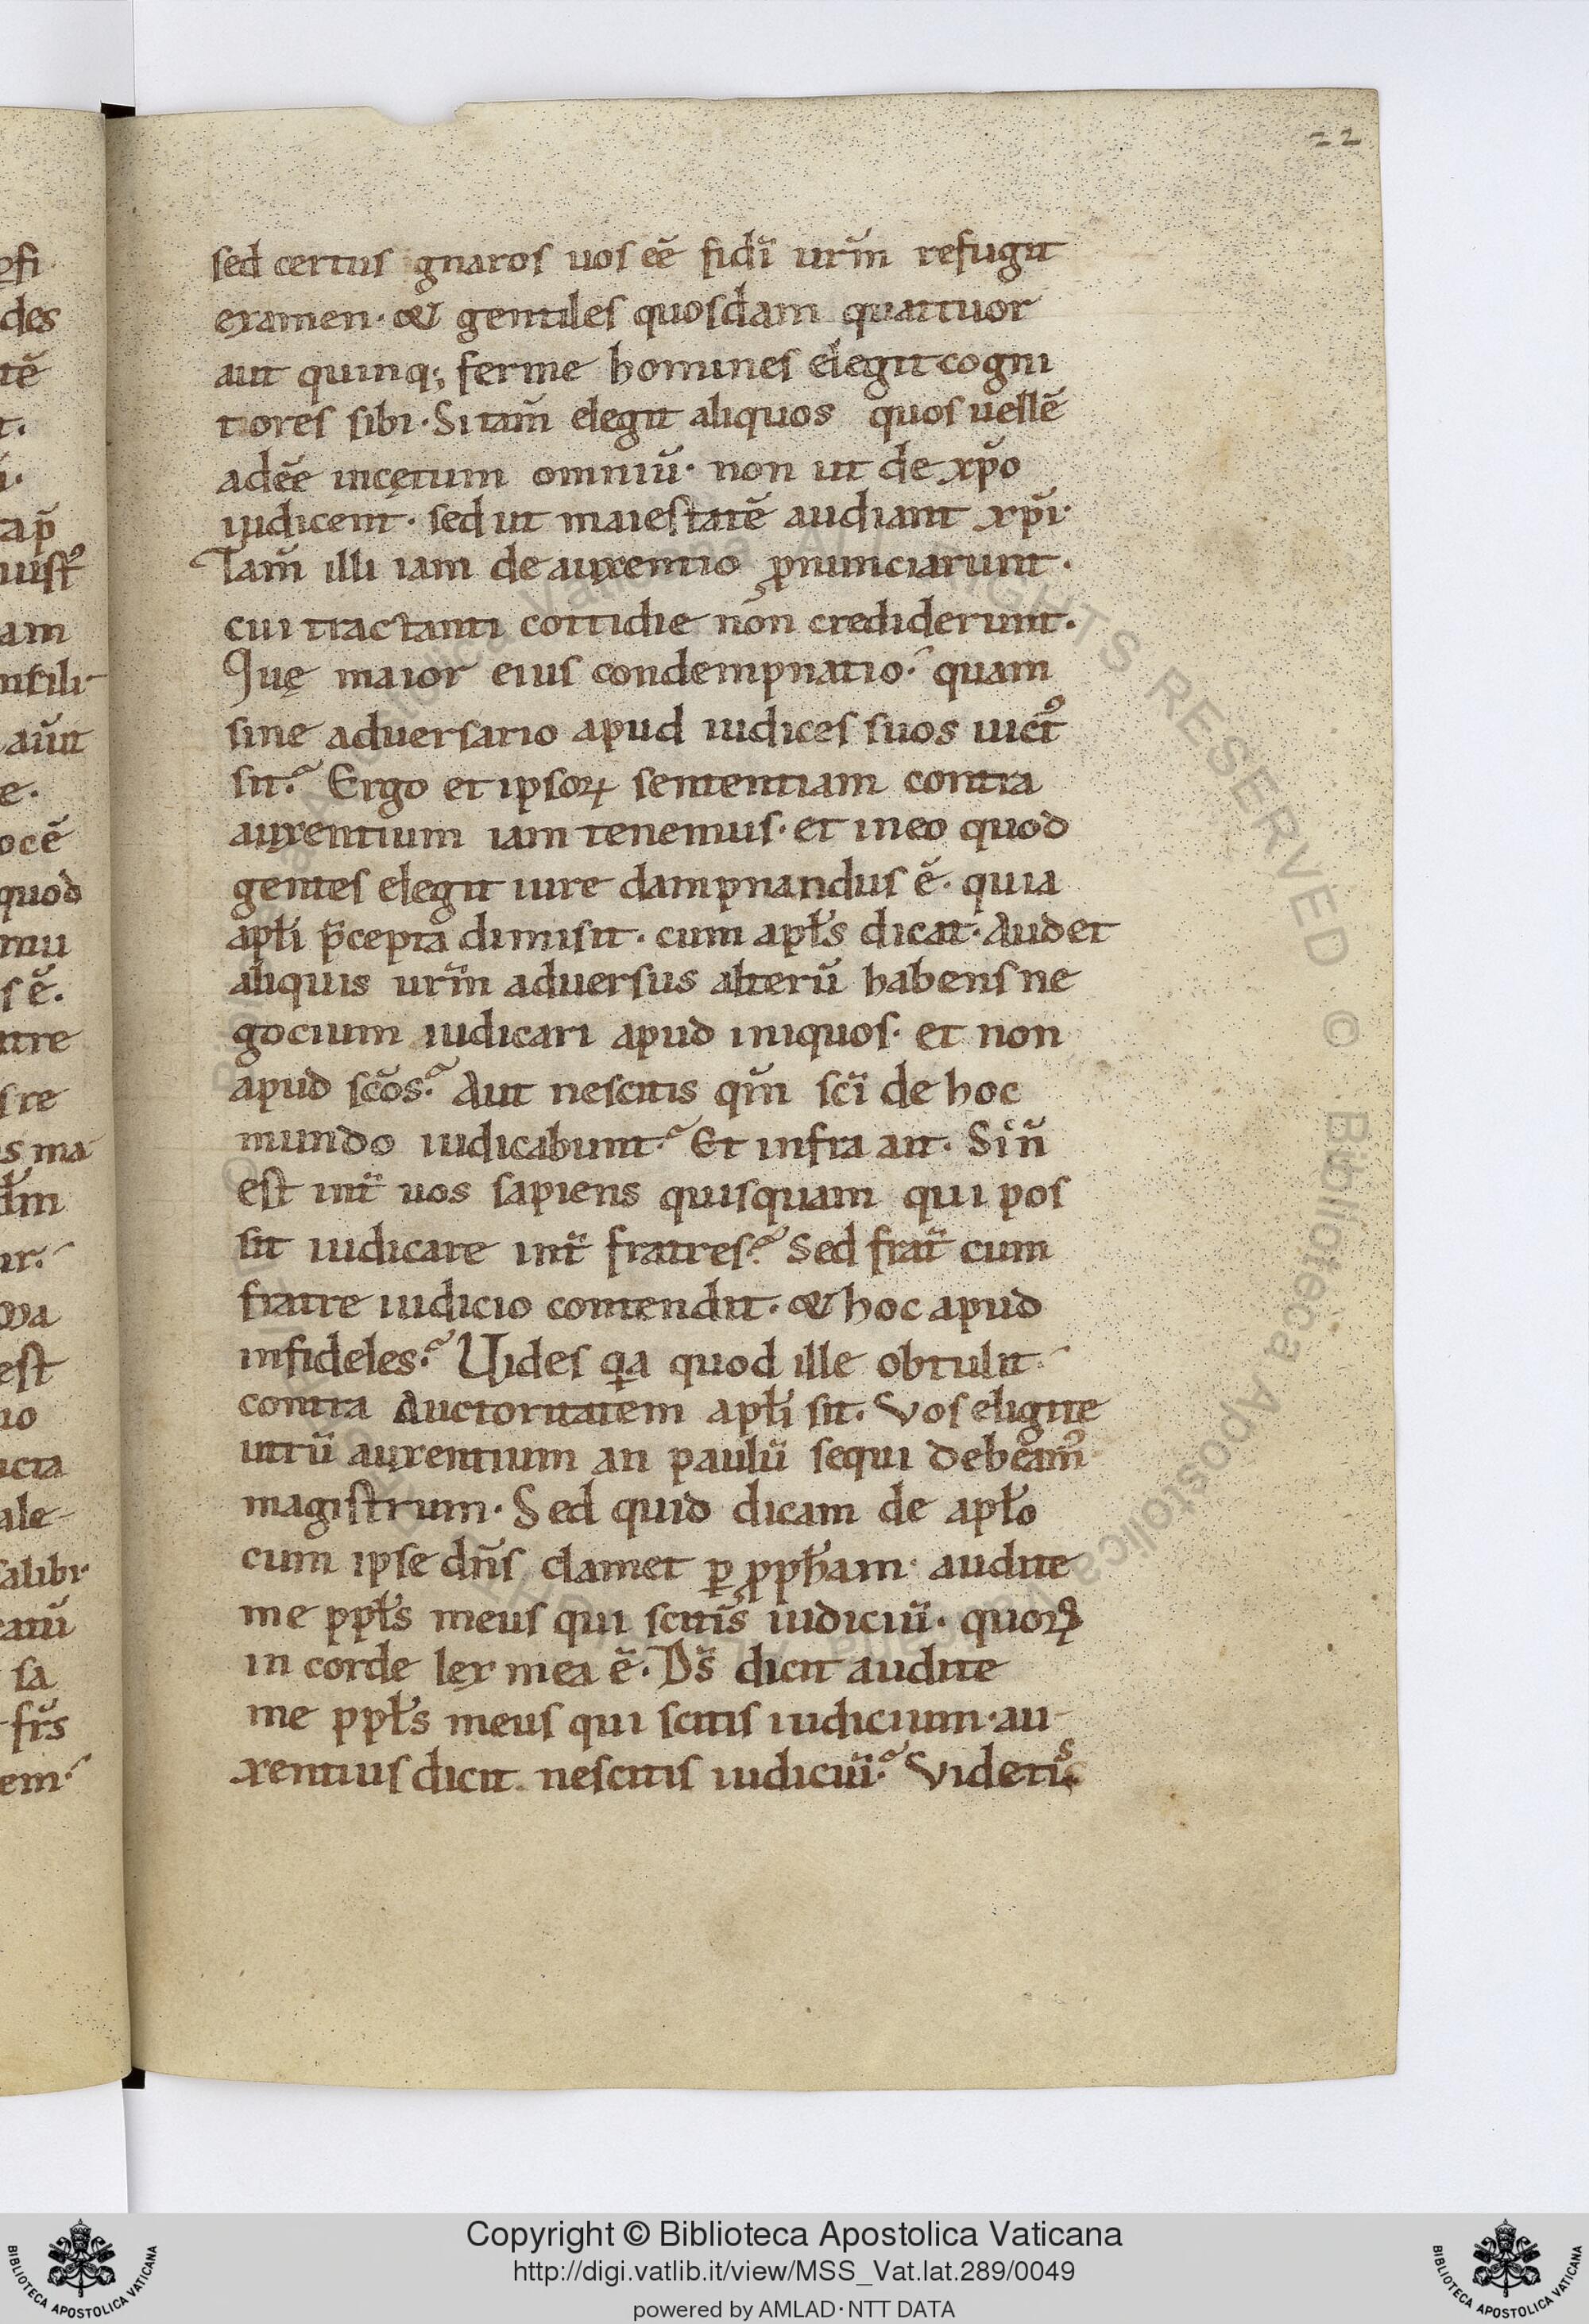 22
sed certus gnaros uos eē fidi ̄ur̄m refugit
examen· & gentiles quosdam quattuor
aut quinq; ferme homines elegit cogni
tores sibi· Si tam̄ elegit aliquos quos uellē
adeē incętum omniū· non ut de xp̄o
iudicent· sed ut maiestatē audiant xp̄i·
Tam̄ illi iam de auxentio ꝓnunciarunt·
cui tractanti cottidie non crediderunt·
Quę maior eius condempnatio· quam
sine aduersario apud iudices suos uictꝰ
sit? Ergo et ipsoꝝ sententiam contra
auxentium iam tenemus· et in eo quod
gentes elegit iure dampnandus ē· quia
apłi p̄cepta dimisit· cum apłs dicat· Audet
aliquis ur̄m aduersus alterū habens ne
gocium iudicari apud iniquos· et non
apud scōs? Aut nescitis qm̄ sci ̄de hoc
mundo iudicabunt? Et infra ait· Sin̄
est int̄ uos sapiens quisquam qui pos
sit iudicare int̄ fratres? Sed frat̄ cum
fratre iudicio contendit· & hoc apud
infideles? Uides qa quod ille obtulit
contra auctoritatem apłi sit· Vos eligite
utrū auxentium an paulū sequi debeam̄ꝰ
magistrum· Sed quid dicam de apło
cum ipse dn̄s clamet ꝑ ꝓpħam· audite
me ppłs meus qui scitis iudiciū· quoꝝ
in corde lex mea ē· Ds̄ dicit audite
me ppłs meus qui scitis iudicium· au
xentius dicit nescitis iudiciū? Videtis
Copyright © Biblioteca Apostolica Vaticana
http://digi.vatlib.it/view/MSS_Vat.lat.289/0049
powered by AMLAD·NTT DATA
BIBLIOTECA APOSTOLICA VATICANA
BIBLIOTECA APOSTOLICA VATICANA